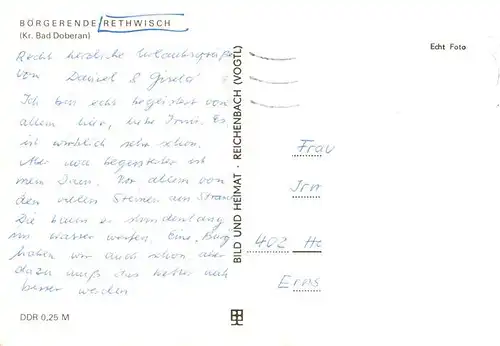 BÖRGERENDE/RETHWISCH
(Kr. Bad Doberan)
Recht herzliche Urlaubsgrüße
von Daniel & Gisela
Ich bin echt begeistert von
allem hier, liebe Irmi. Es
ist wirklich sehr schön.
Aber noch begeisterter ist
mein Dani. Vor allem von
den vielen Steinen am Strand
Die kann er stundenlang
ins Wasser werfen. Eine "Burg"
haben wir auch schon aber
dazu muß das Wetter noch
besser werden
DDR 0,25 M
BILD UND HEIMAT · REICHENBACH (VOGTL)
Echt Foto
Frau
Irm
402 Ha
Erns